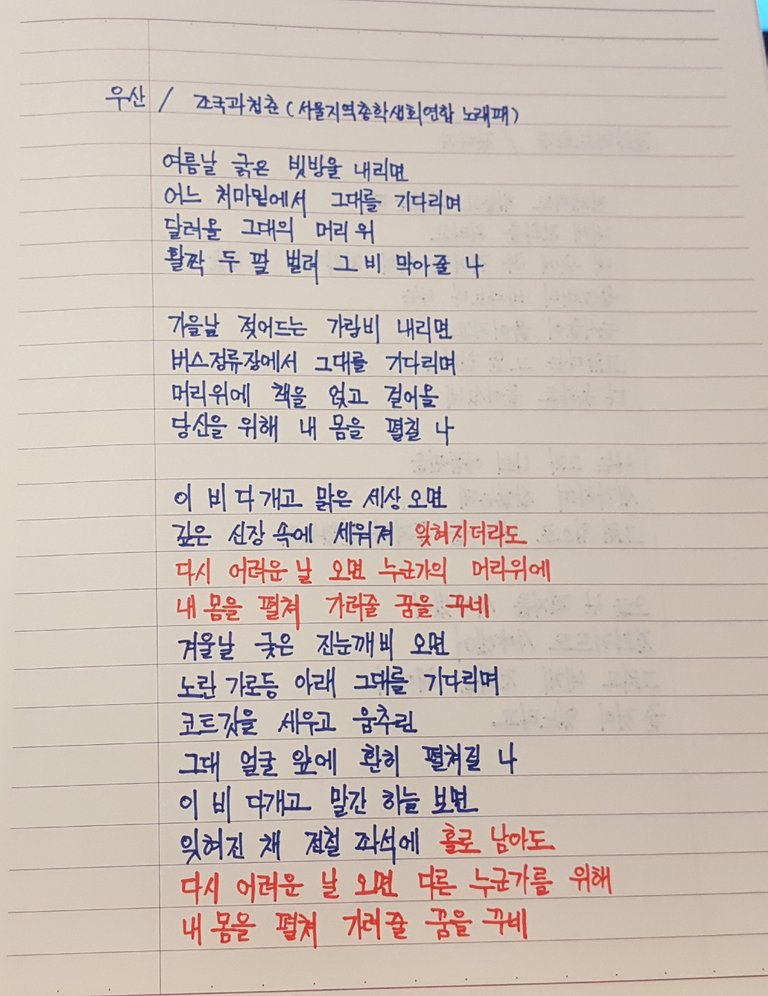 우산 / 조국과청춘 (서울지역총학생회연합 노래패)
여름날 굵은 빗방울 내리면
어느 처마밑에서 그대를 기다리며
달려올 그대의 머리 위
활짝 두 팔 벌려 그 비 막아줄 나
가을날 젖어드는 가랑비 내리면
버스정류장에서 그대를 기다리며
머리위에 책을 얹고 걸어올
당신을 위해 내 몸을 펼칠 나
이 비 다 개고 맑은 세상 오면
깊은 신장 속에 세워져 잊혀지더라도
다시 어려운 날 오면 누군가의 머리위에
내 몸을 펼쳐 가려줄 꿈을 꾸네
겨울날 궂은 진눈깨비 오면
노란 가로등 아래 그대를 기다리며
코트깃을 세우고 움추린
그대 얼굴 앞에 환히 펼쳐질 나
이 비 다개고 말간 하늘 보면
잊혀진 채 전철 좌석에 홀로 남아도
다시 어려운 날 오면 다른 누군가를 위해
내 몸을 펼쳐 가려줄 꿈을 꾸네